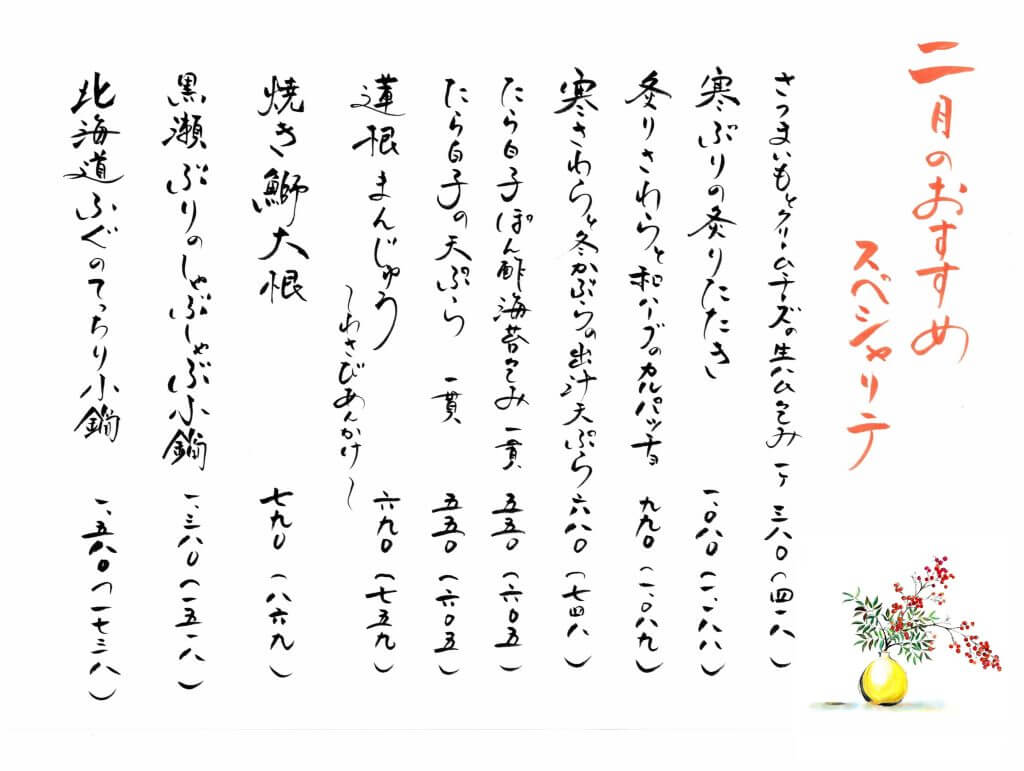 二月のおすすめ
スペシャリテ
さつまいもとクリームチーズの生ハム包み 一ヶ 三八〇(四一八)
寒ぶりの炙りたたき 一、〇八〇(一、一八八)
炙りさわらと和ハーブのカルパッチョ 九九〇(一、〇八九)
寒さわらと冬かぶらの出汁天ぷら 六八〇(七四八)
たら白子ぽん酢海苔包み 一貫 五五〇(六〇五)
たら白子の天ぷら 一貫 五五〇(六〇五)
蓮根まんじゅう 六九〇(七五九)
〜わさびあんかけ〜
焼き鰤大根 七九〇(八六九)
黒瀬ぶりのしゃぶしゃぶ小鍋 一、三八〇(一五一八)
北海道ふぐのてっちり小鍋 一、五八〇(一七三八)